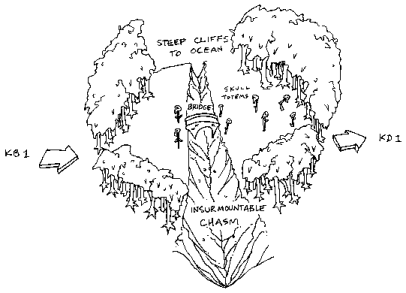 STEEP CLIFFS
TO OCEAN
SKULL
TOTEMS
BRIDGE
KB1
KD1
INSURMOUNTABLE
CHASM